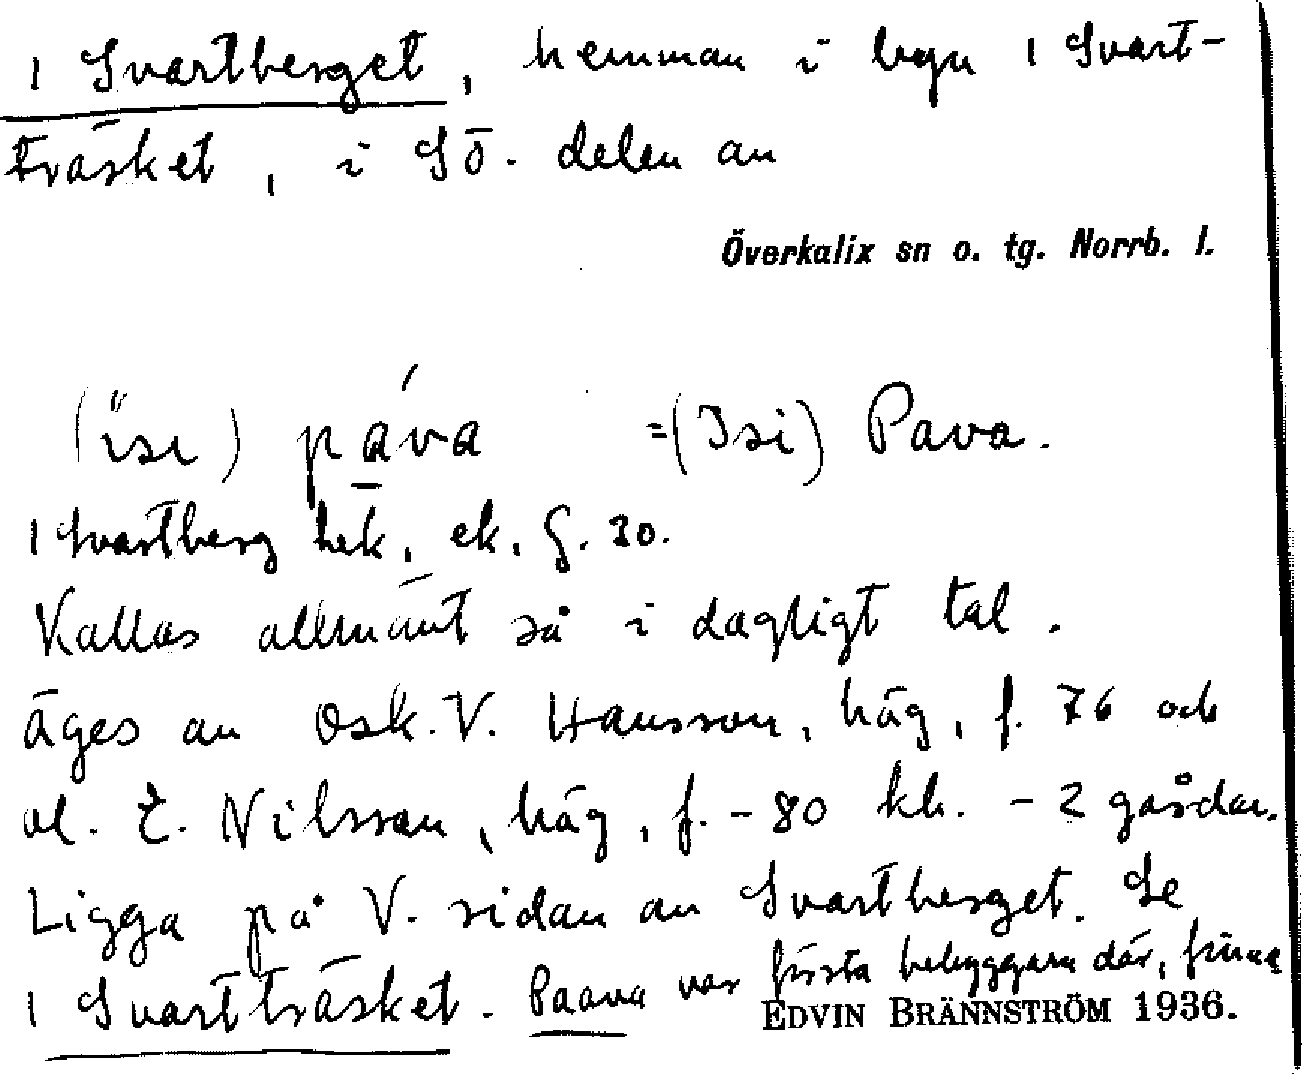 1 Svartberget, hemman i byn 1 Svart-
träsket, i SÖ. delen av
Överkalix sn o. tg. Norrb. l.
(isi) páva =(Isi) Pava.
1 Svartberg hek, ek. G. 30.
Kallas allmänt så i dagligt tal.
äges av Osk. V. Hansson, häg, f. 76 och
al. E. Nilsson, häg, f. -80 kh. - 2 gårdar.
Ligga på V. sidan av Svartberget. Se
1 Svartträsket. Paava var första bebyggare där, finne
EDVIN BRÄNNSTRÖM 1936.